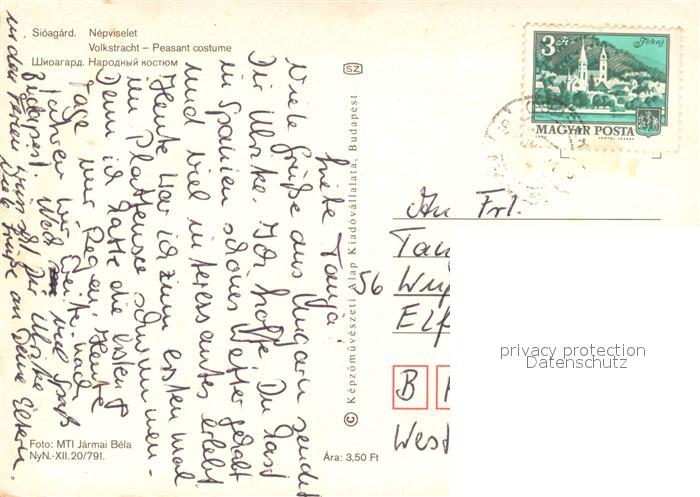 Sióagárd. Népviselet
Volkstracht – Peasant costume
Шиоагард. Народный костюм
SZ
3 Ft
Tokaj
MAGYAR POSTA
Liebe Tanja!
Viele Grüße aus Ungarn sendet
Dir Ulrike. Ich hoffe Du hast
in Spanien schönes Wetter gehabt
und viel interessantes erlebt
Heute war ich zum ersten mal
im Plattensee schwimmen-
Denn ich hatte die ersten
Tage nur Regen. Heute
fahren wir weiter nach
Budapest. Noch viel Spaß
in den Ferien wünscht Dir Ulrike
Viele Grüße an Deine Eltern.
© Képzőművészeti Alap Kiadóvállalata, Budapest
An Frl.
Tan
56 Wup
Elf
B
West
privacy protection
Datenschutz
Foto: MTI Jármai Béla
NyN.-XII.20/791.
Ára: 3,50 Ft